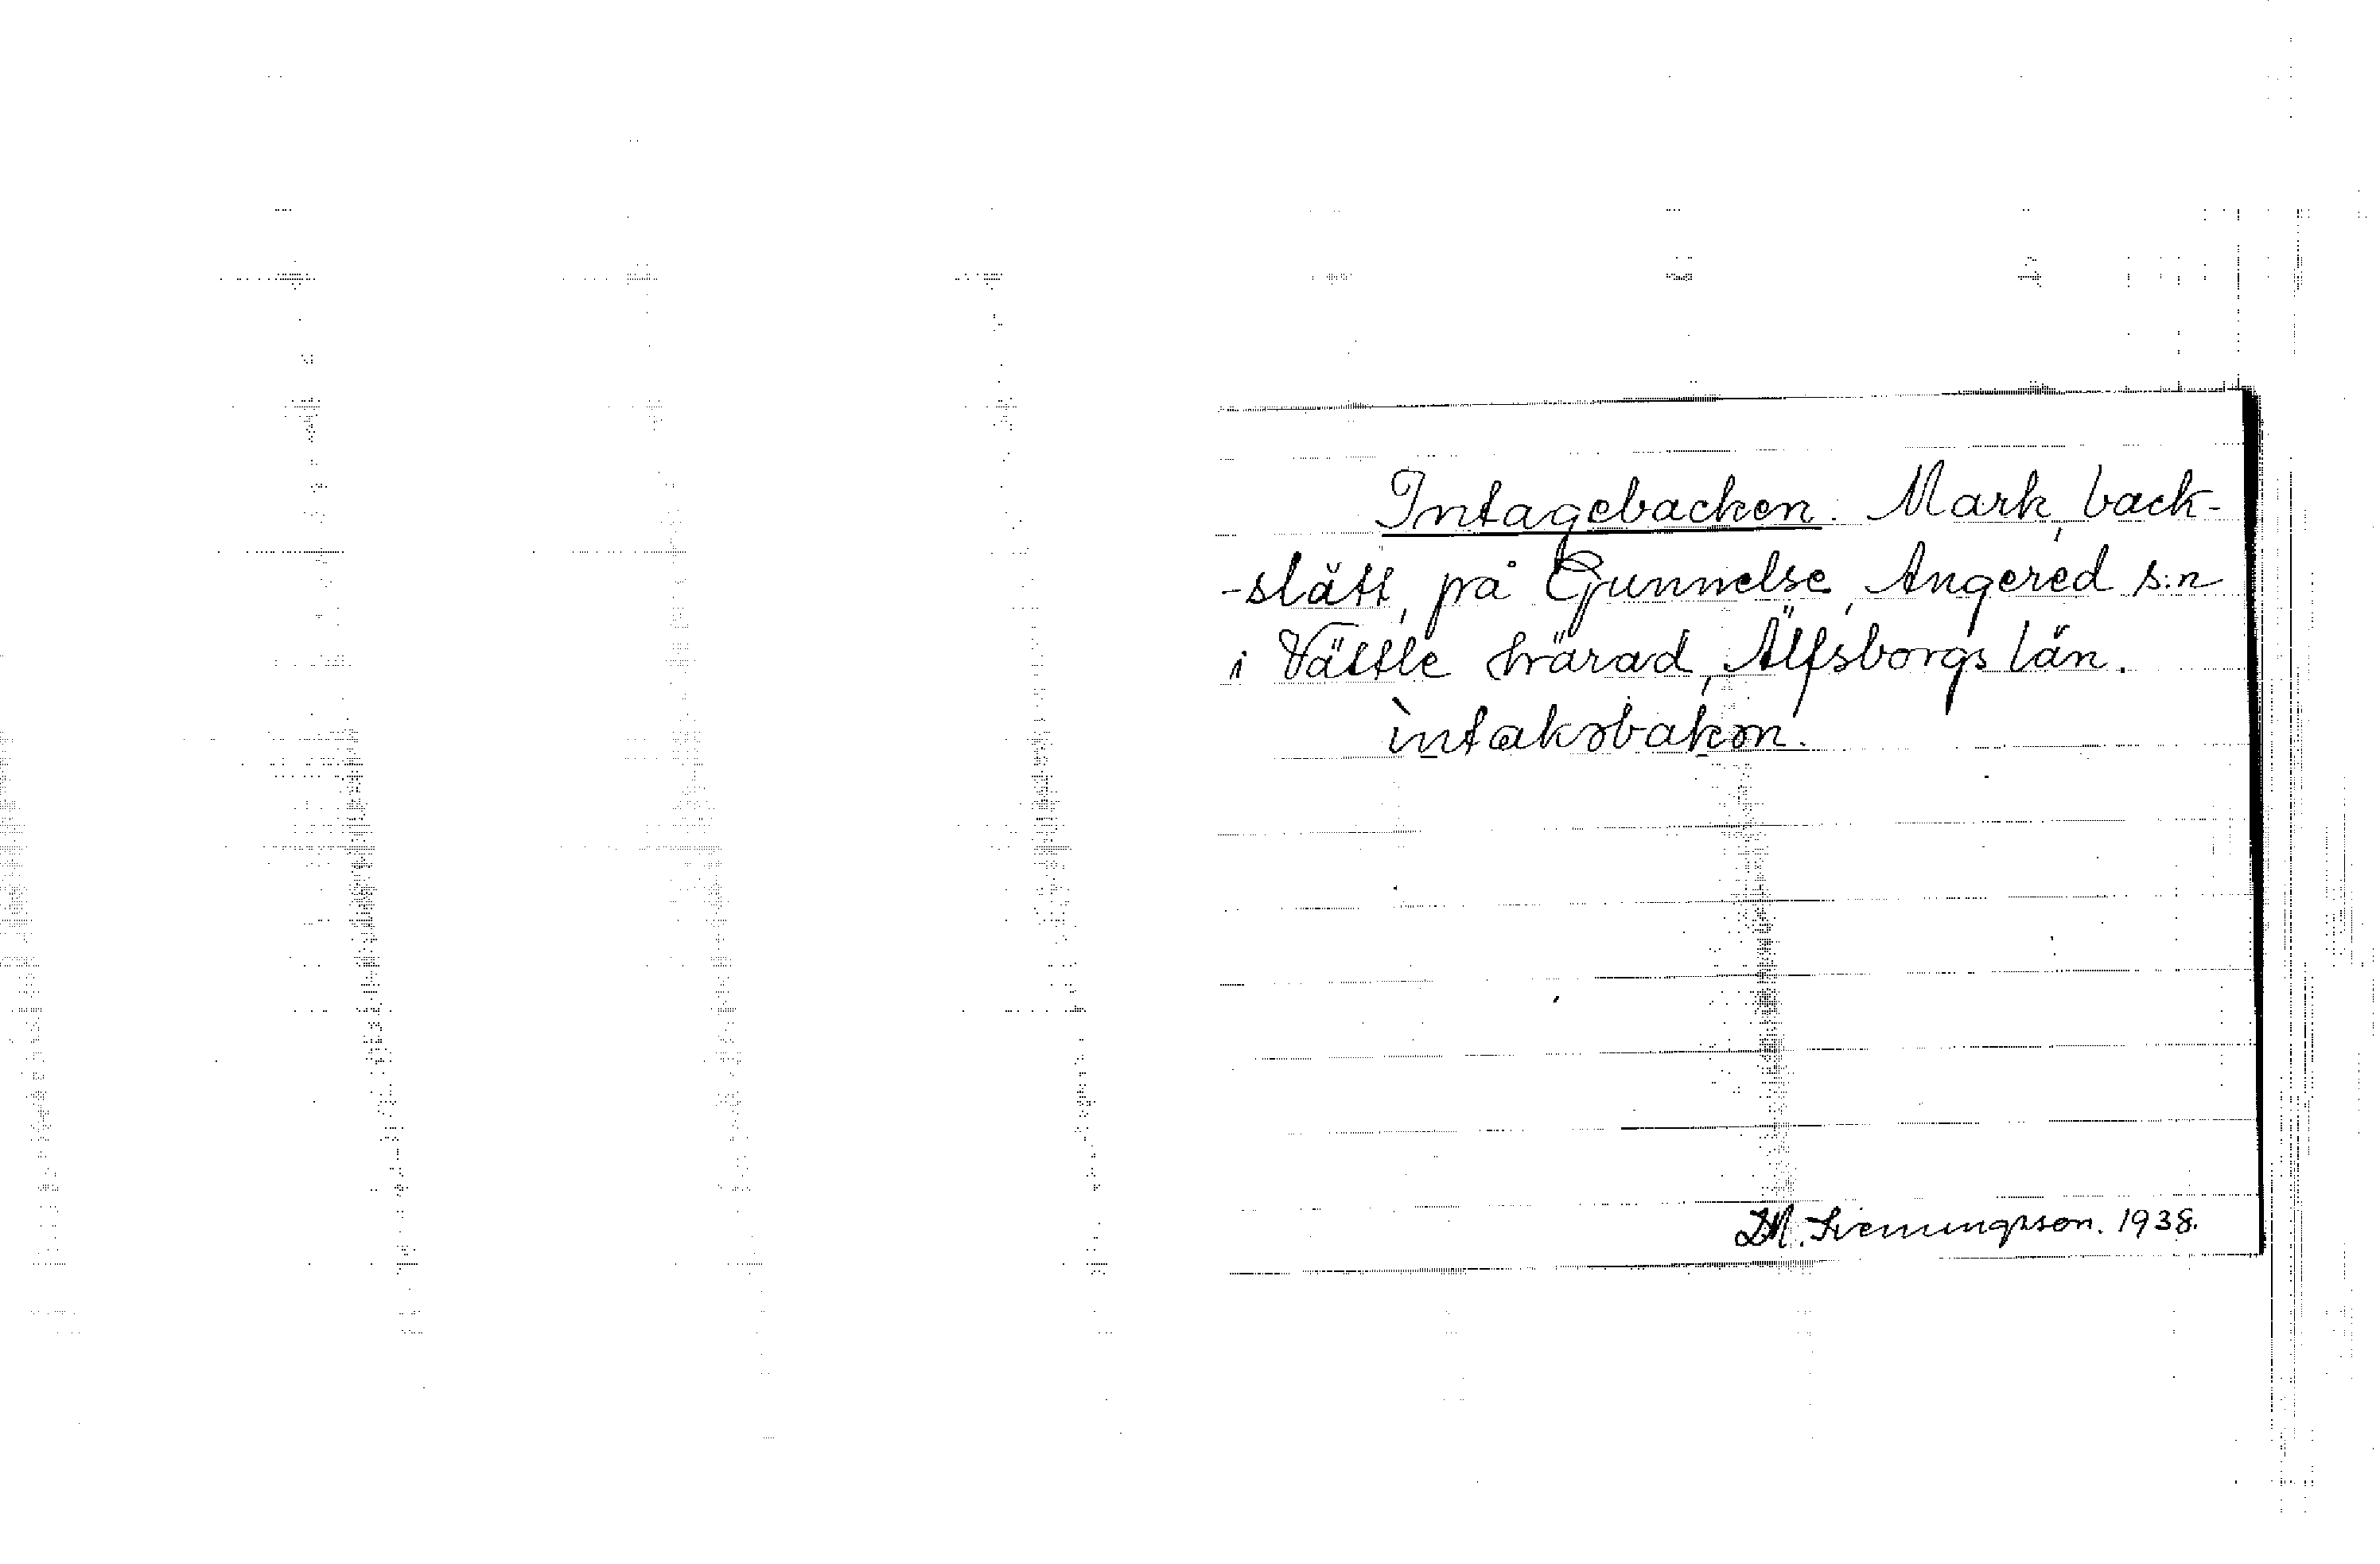 Intagebacken. Mark, back-
-slätt, på Gunnelse, Angered s:n
i Vättle härad, Älfsborgs län.
ìntaksbakən.
1938.